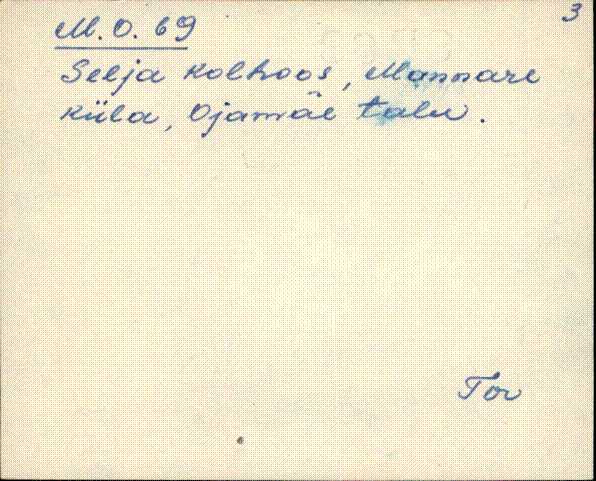 3
M. O. 69
Selja kolhoos, Mannare
küla, Ojamäe talu.
Tor